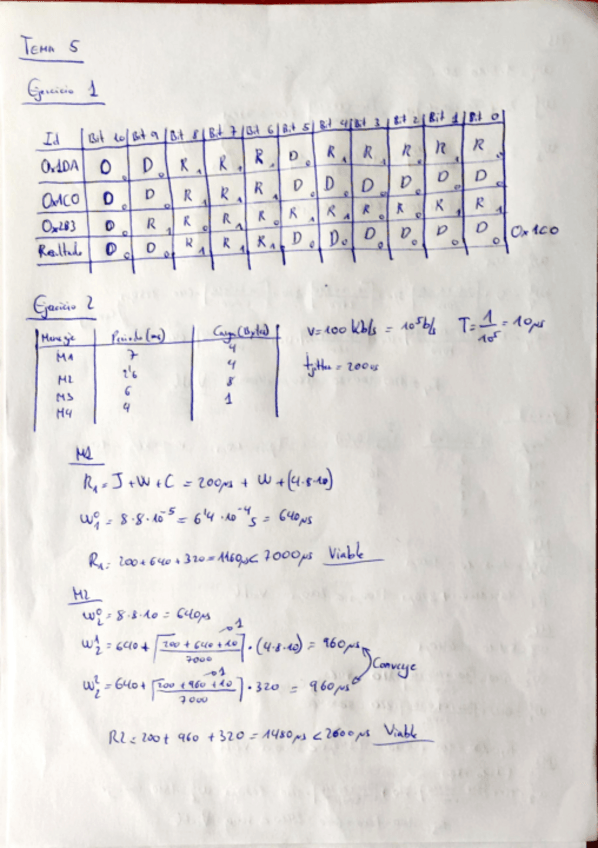 TEMA 5
Ejercicio 1
Id Bit 10 Bit 9 Bit 8 Bit 7 Bit 6 Bit 5 Bit 4 Bit 3 Bit 2 Bit 1 Bit 0
0x1DA D 0 D 0 R 1 R 1 R 1 D 0 R 1 R 1 R 1 R 1 R 0
0x1C0 D 0 D 0 R 1 R 1 R 1 D 0 D 0 D 0 D 0 D 0 D 0
0x2B3 D 0 R 1 R 0 R 1 R 0 R 1 R 1 R 0 R 0 R 1 R 1
Resultado D 0 D 0 R 1 R 1 R 1 D 0 D 0 D 0 D 0 D 0 D 0 0x1C0
Ejercicio 2
Mensaje Periodo (ms) Carga (Bytes) V=100 kb/s = 10^5 b/s T=1/10^5=10µs
M1 7 4
M2 2'6 4 tjitter = 200µs
M3 6 8
M4 4 1
M1
R1 = J+W+C = 200µs + W + (4·8·10)
W1^0 = 8·8·10^-5 = 6'4·10^-4 s = 640µs
R1 = 200+640+320=1160µs < 7000µs Viable
M2
W2^0 = 8·8·10 = 640µs
W2^1 = 640 + ⌈(200+640+10)/7000⌉ → 1 · (4·8·10) = 960µs
Converge
W2^2 = 640 + ⌈(200+960+10)/7000⌉ → 1 · 320 = 960µs
R2 = 200 + 960 + 320 = 1480µs < 2600µs Viable